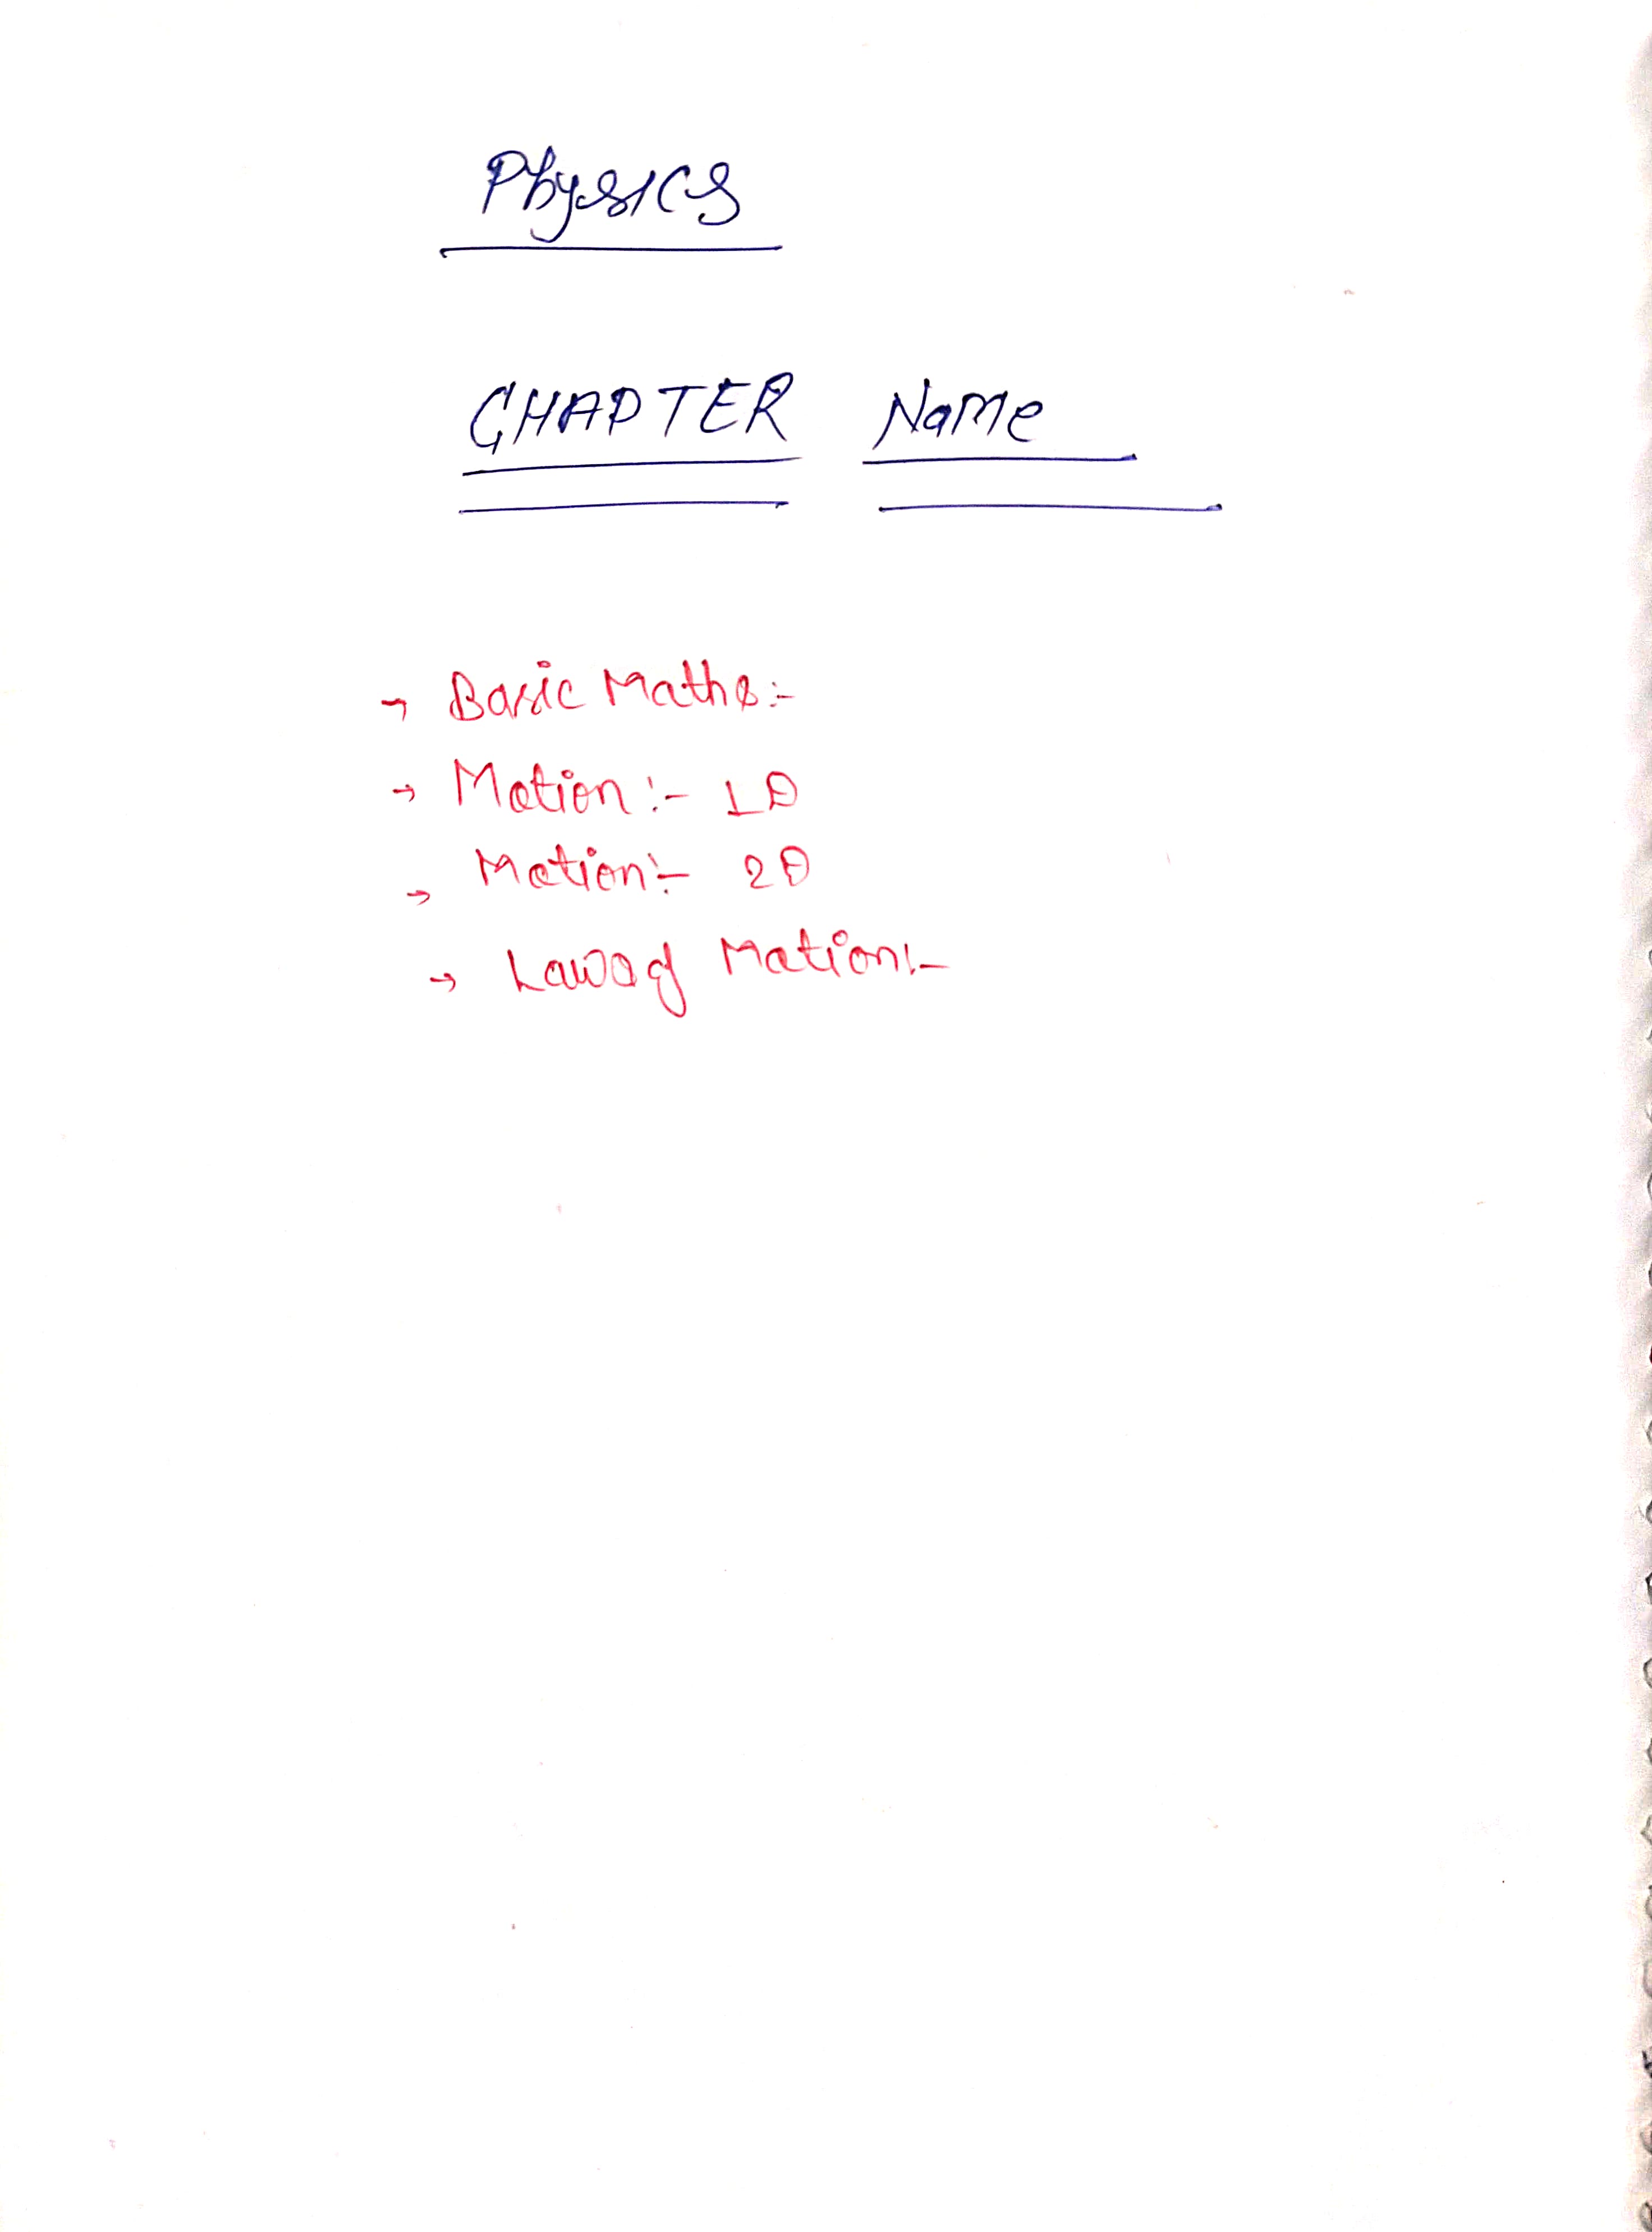 Physics
CHAPTER Name
→ Basic Maths:-
→ Motion:- 1D
→ Motion:- 2D
→ Laws of Motion:-